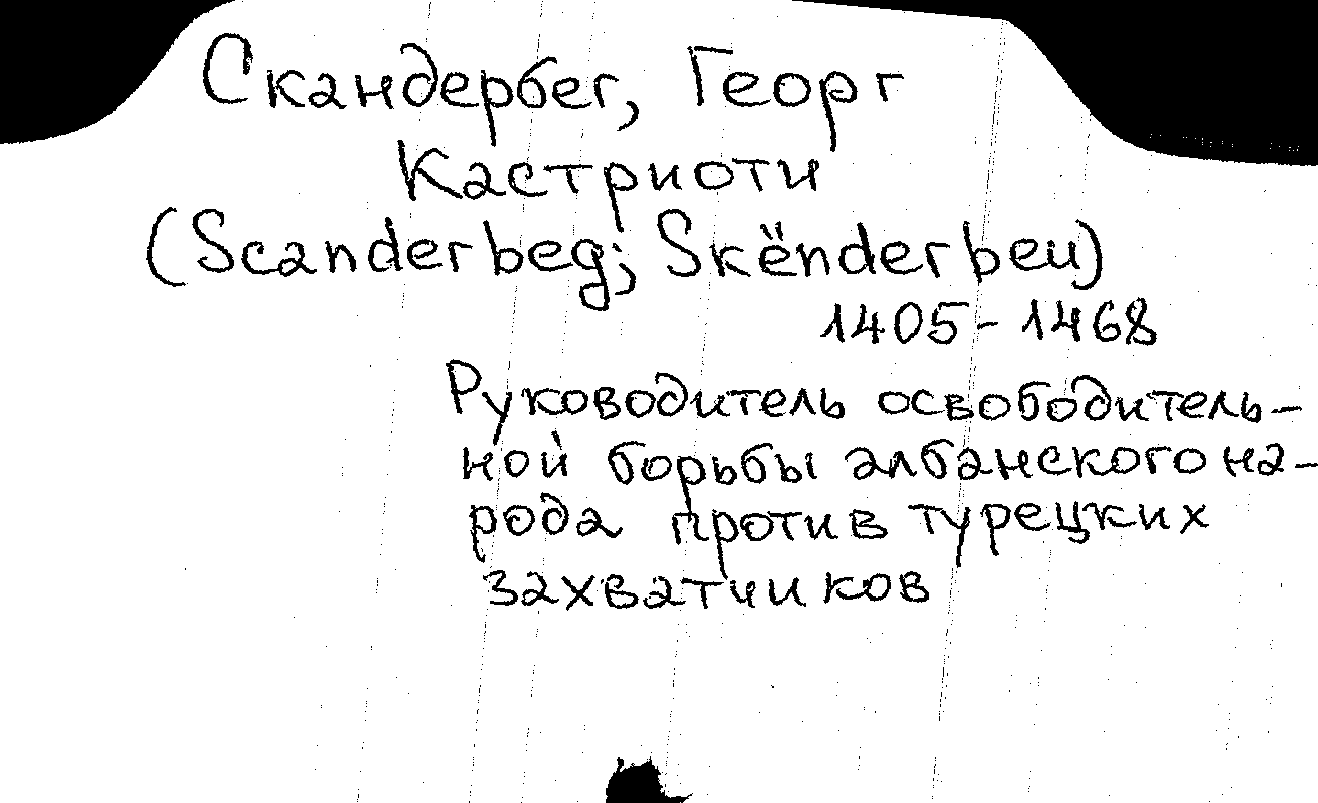 Скандербег, Георг
Кастриоти
(Scanderbeg; Skënderbeu)
1405 - 1468
Руководитель освободитель-
ной борьбы албанского на-
рода против турецких
захватчиков